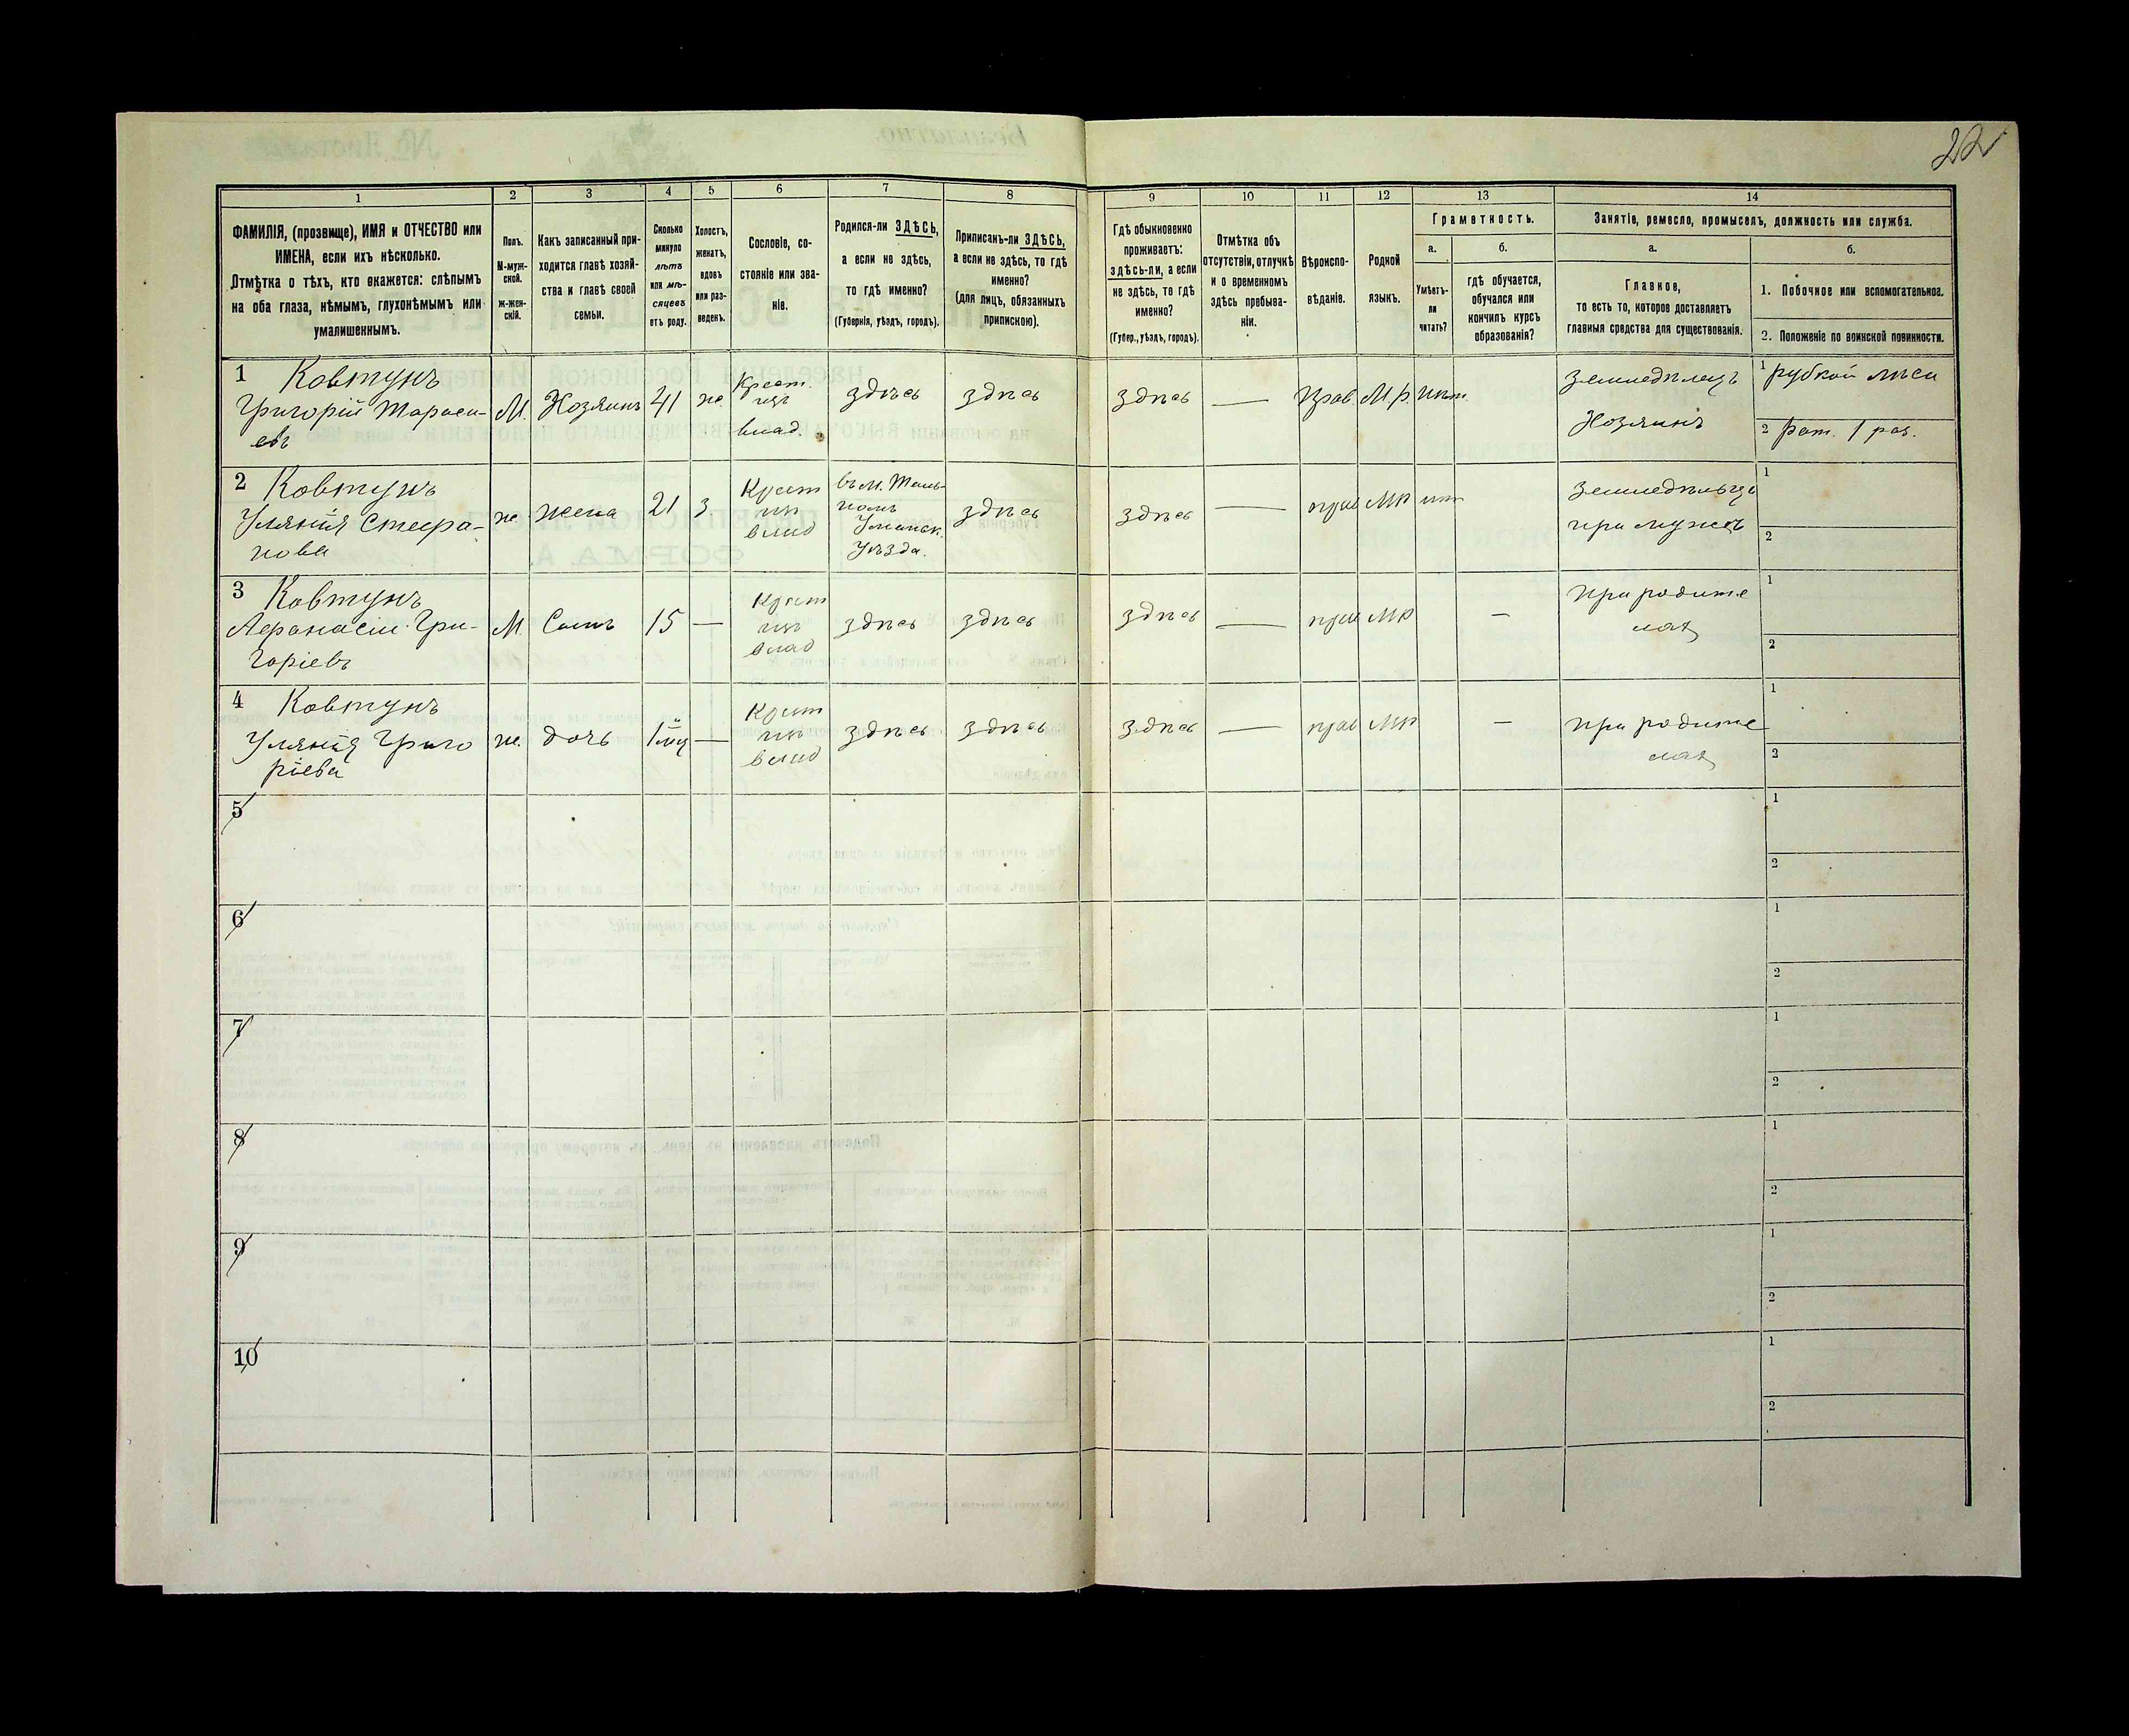 22
1
2
3
4
5
6
7
8
9
10
11
12
13
14
ФАМИЛІЯ, (прозвище), ИМЯ и ОТЧЕСТВО или
ИМЕНА, если ихъ нѣсколько.
Отмѣтка о тѣхъ, кто окажется: слѣпымъ
на оба глаза, нѣмымъ, глухонѣмымъ или
умалишеннымъ.
Полъ.
М-муж-
ской.
ж-жен-
скій.
Какъ записанный при-
ходится главѣ хозяй-
ства и главѣ своей
семьи.
Сколько
минуло
лѣтъ
или мѣ-
сяцевъ
отъ роду.
Холостъ,
женатъ,
вдовъ
или раз-
веденъ.
Сословіе, со-
стояніе или зва-
ніе.
Родился-ли ЗДѢСЬ,
а если не здѣсь,
то гдѣ именно?
(Губернія, уѣздъ, городъ).
Приписанъ-ли ЗДѢСЬ,
а если не здѣсь, то гдѣ
именно?
(для лицъ, обязанныхъ
припискою).
Гдѣ обыкновенно
проживаетъ:
здѣсь-ли, а если
не здѣсь, то гдѣ
именно?
(Губер., уѣздъ, городъ).
Отмѣтка объ
отсутствіи, отлучкѣ
и о временномъ
здѣсь пребыва-
ніи.
Вѣроиспо-
вѣданіе.
Родной
языкъ.
Грамотность.
а.
б.
Умѣетъ-
ли
читать?
гдѣ обучается,
обучался или
кончилъ курсъ
образованія?
Занятіе, ремесло, промыселъ, должность или служба.
а.
б.
Главное,
то есть то, которое доставляетъ
главныя средства для существованія.
1. Побочное или вспомогательное.
2. Положеніе по воинской повинности.
1 Ковтунъ
Григорій Тараси-
евъ
М.
Хозяинъ
41
ж.
Крест.
изъ
влад.
здѣсь
здѣсь
здѣсь
—
Прав.
М.р.
нѣт.
Земледѣлецъ
Хозяинъ
1 рубкой лѣса
2 Рат. 1 раз.
2 Ковтунъ
Уляния Стефа-
нова
ж.
жена
21
З.
Крест
изъ
влад
въ м. Таль-
номъ
Уманск.
Уѣзда.
здѣсь
здѣсь
—
прав
МР
нѣт
Земледѣльца
при мужѣ
1
2
3 Ковтунъ
Афанасій Гри-
горіевъ
М.
Сынъ
15
—
Крест
изъ
влад
здѣсь
здѣсь
здѣсь
—
прав
МР
—
при родите
лях
1
2
4 Ковтунъ
Уляния Григо
ріева
ж.
дочь
1 мц
—
Крест
изъ
влад
здѣсь
здѣсь
здѣсь
—
прав
МР
—
при родите
лях
1
2
5
1
2
6
1
2
7
1
2
8
1
2
9
1
2
10
1
2